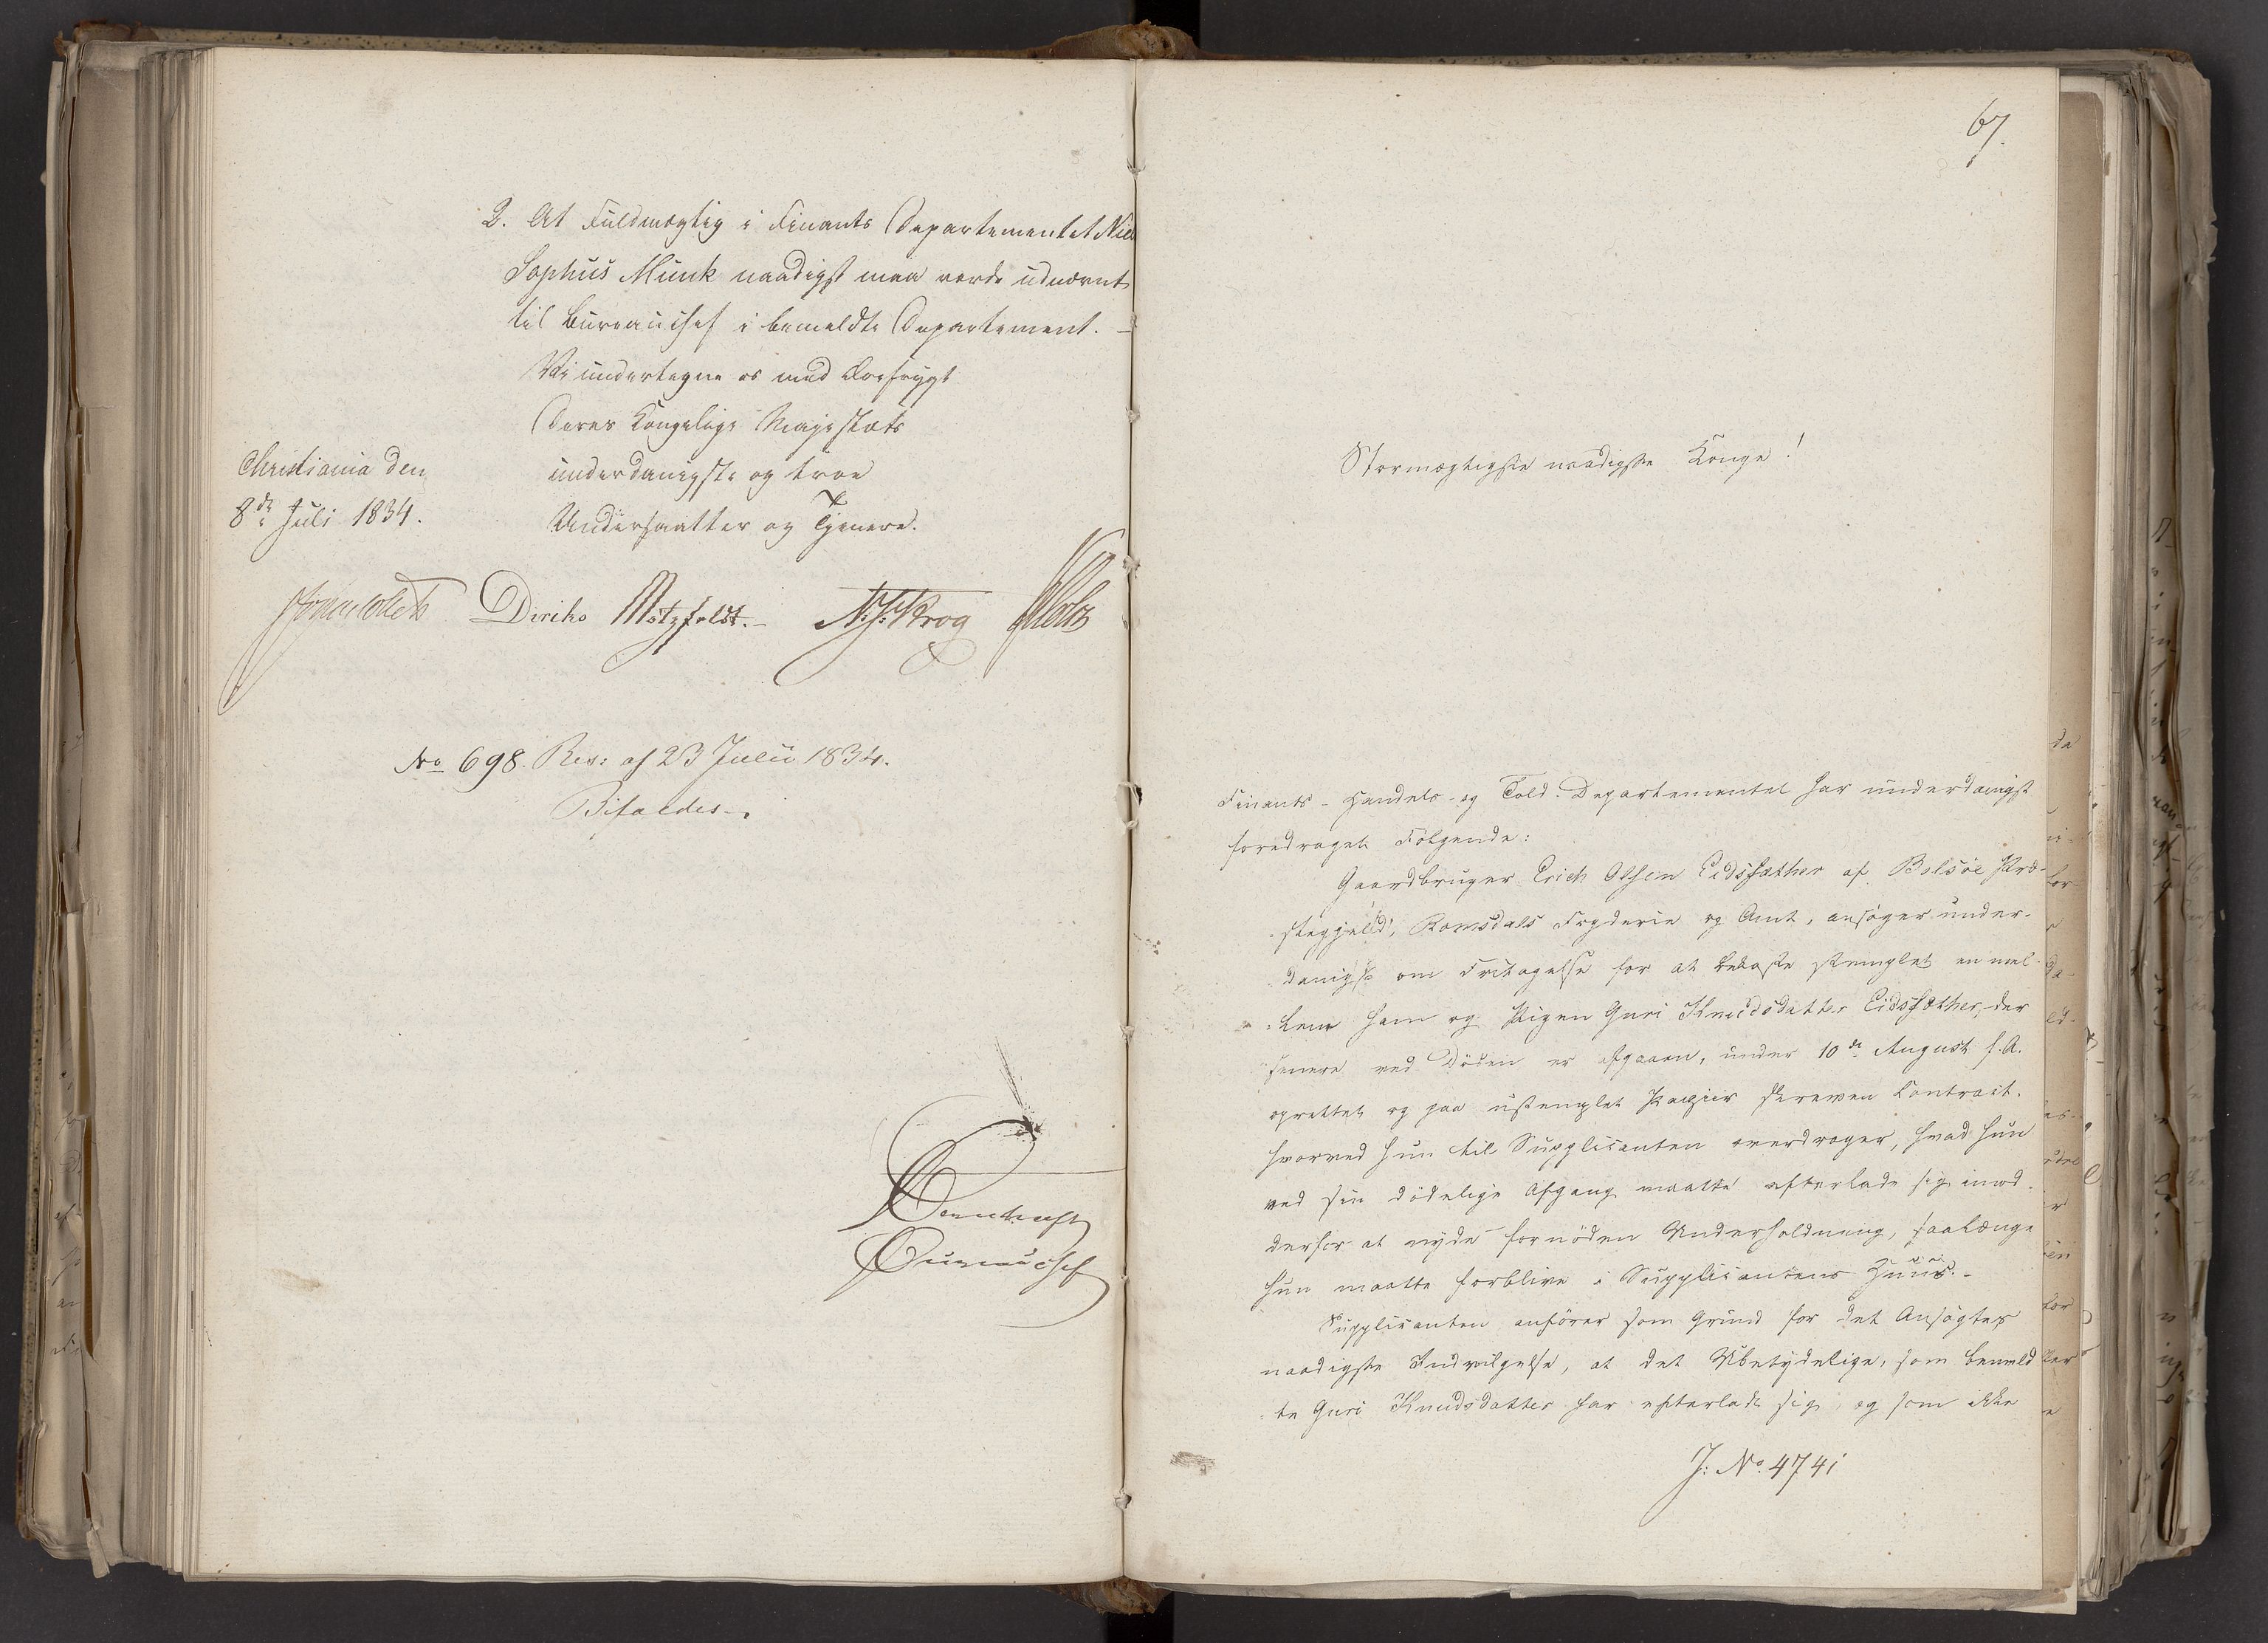 2. At Fuldmægtig i Finants Departementet Niel
Sophus Munk naadigst maa vorde udnævnt
til Bureauchef i bemeldte Departement. –
Vi undertegne os med Ærefrygt
Deres Kongelige Majestæts
Christiania den
8de Juli 1834.
underdanigste og troe
Undersaatter og Tjenere.
Diriks Motzfeldt. – N. J. Krog Holst
No 698. Res: af 23 Julii 1834.
Bifaldes. –
Bureauchef
67.
Stormægtigste naadigste Konge!
Finants- Handels- og Told-Departementet har underdanigst
foredraget Følgende:
Gaardbruger Erich Olsen Eidssæther af Bolsøe Præ-
stegjeld, Romsdals Fogderie og Amt, ansøger under-
danigst om Fritagelse for at bekoste stemplet en mel-
lem ham og Pigen Guri Knudsdatter Eidssæther, der
senere ved Døden er afgaaen, under 10de August f. A.
oprettet og paa ustemplet Papiir skreven Contract.
hvorved hun til Supplicanten overdrager, hvad hun
ved sin dødelige Afgang maatte efterlade sig imod
derfor at nyde fornøden Underholdning, saalænge
hun maatte forblive i Supplicantens Huus. –
Supplicanten anfører som Grund for det Ansøgtes
naadigste Indvilgelse, at det Ubetydelige, som bemeld
te Guri Knudsdatter har efterladt sig og som ikke
J: No. 4741